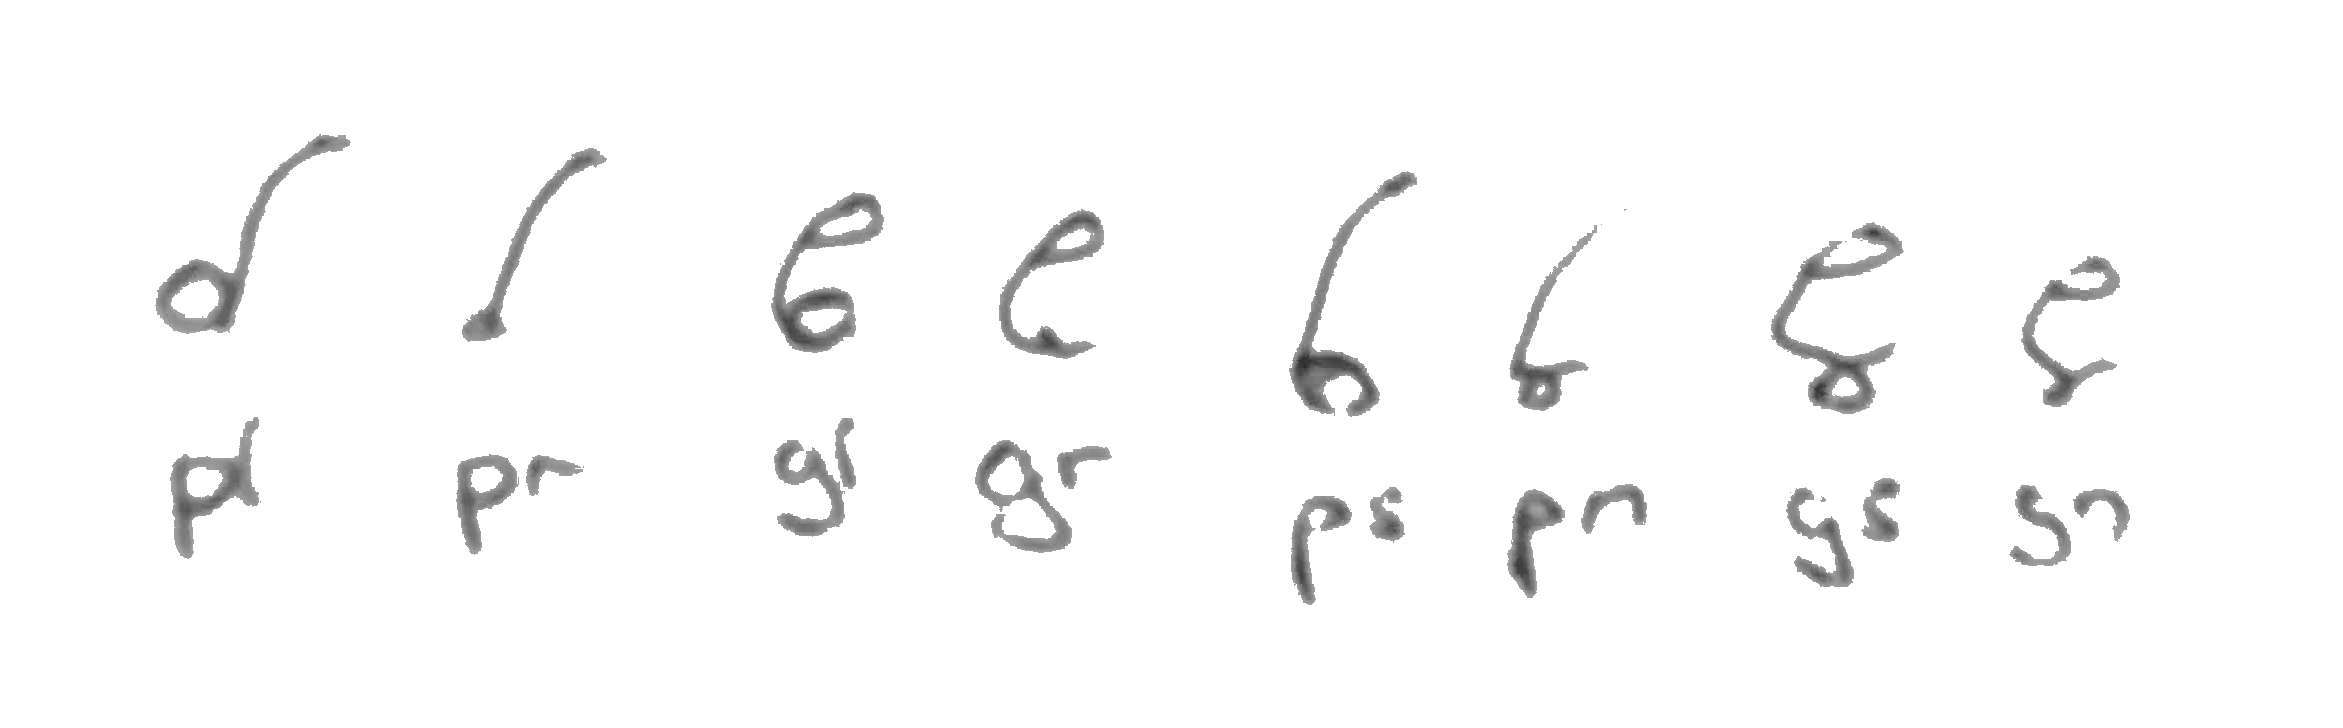 pl pr gl gr ps pn gs sn